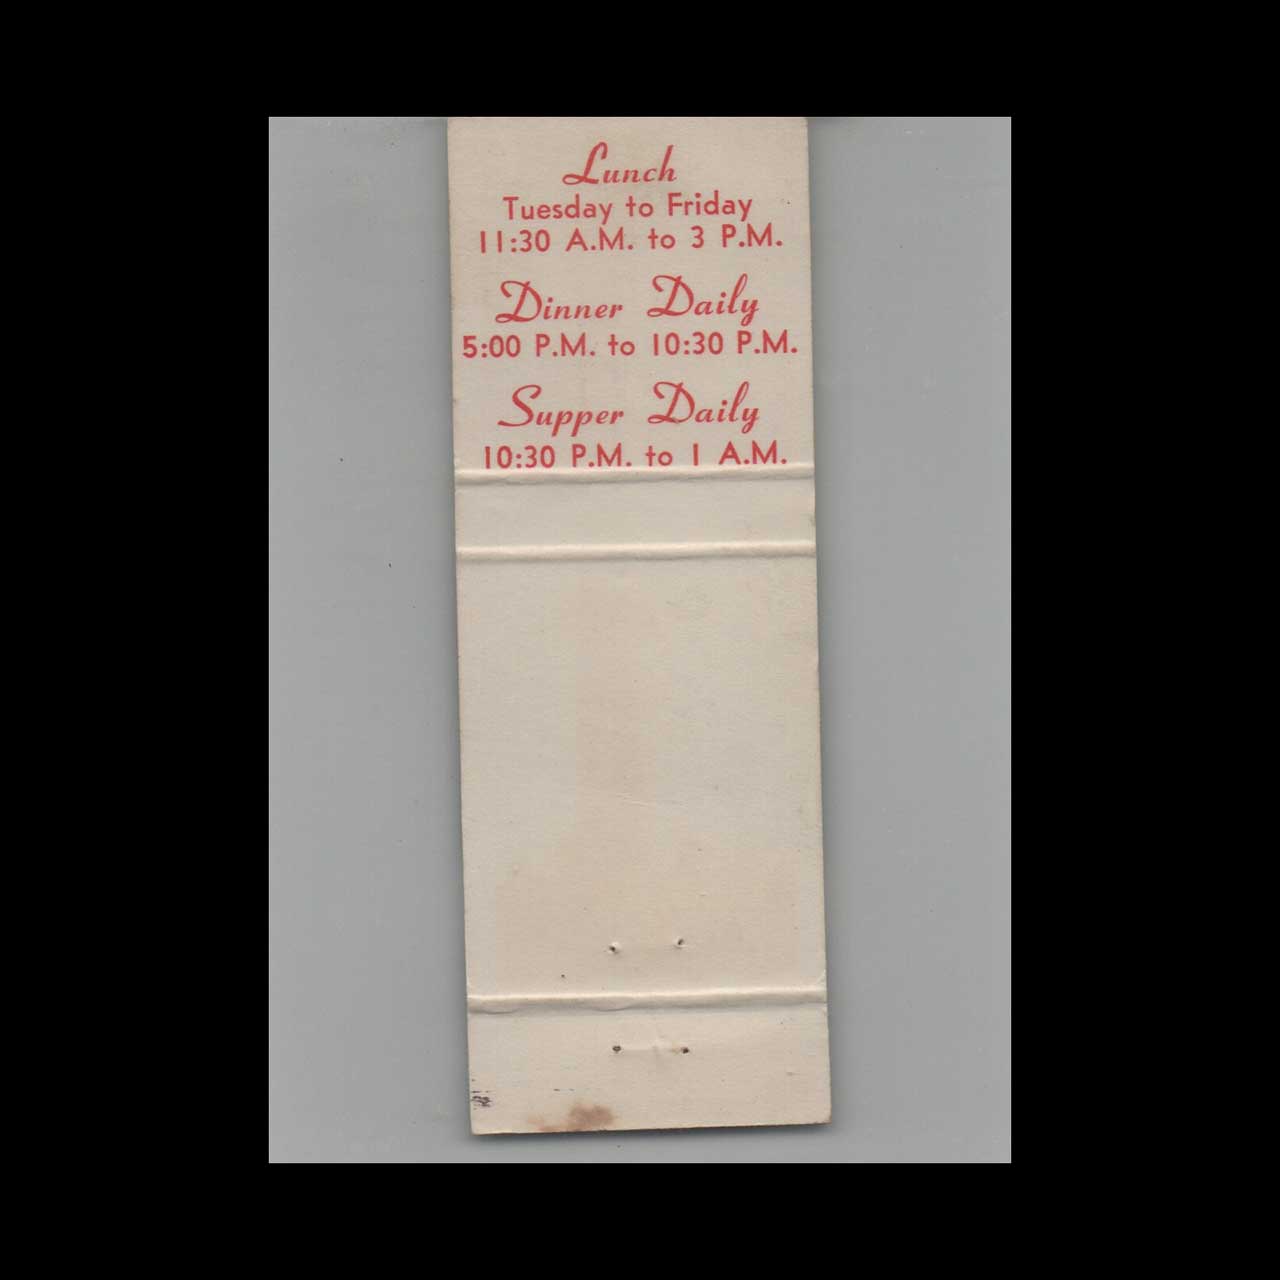 Lunch
Tuesday to Friday
11:30 A.M. to 3 P.M.
Dinner Daily
5:00 P.M. to 10:30 P.M.
Supper Daily
10:30 P.M. to 1 A.M.